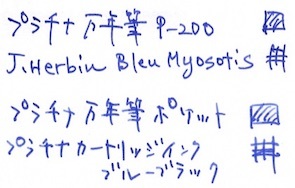 プラチナ 万年筆 P-200
J.Herbin Bleu Myosotis
プラチナ 万年筆 ポケット
プラチナカートリッジインク
ブルーブラック